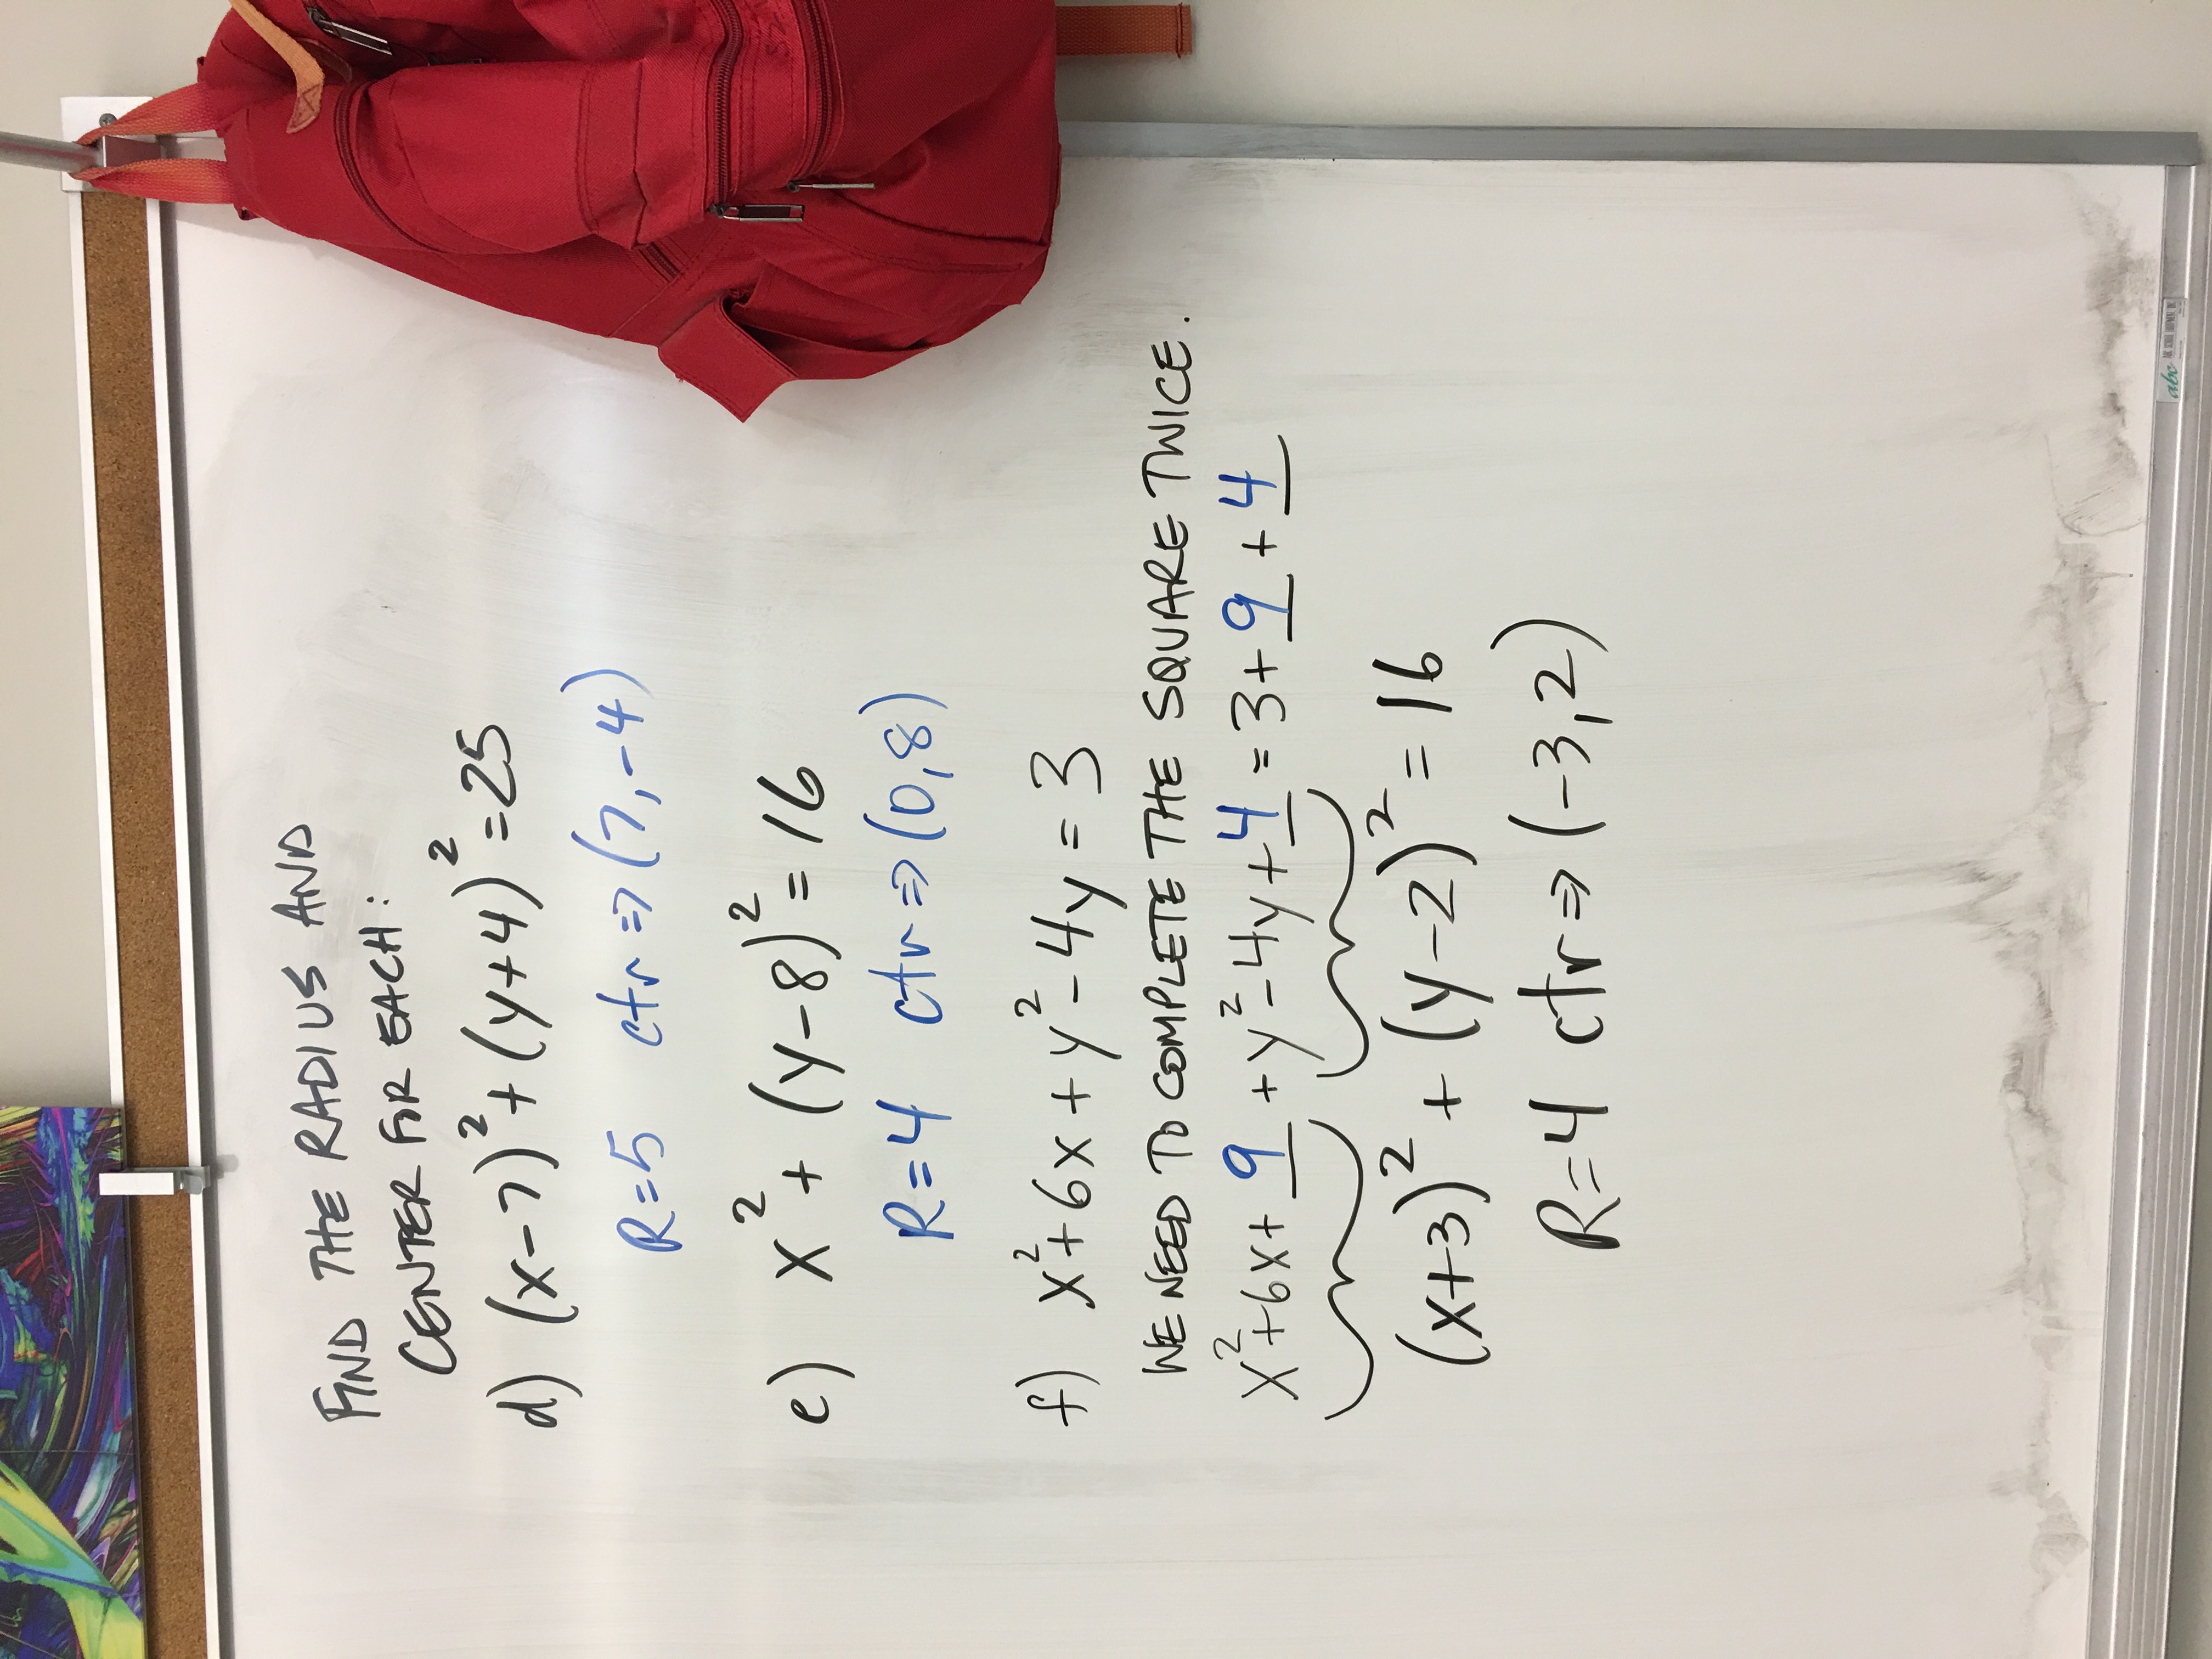 FIND THE RADIUS AND
CENTER FOR EACH:
d) (x-7)²+(y+4)²=25
R=5 ctr⇒(7,-4)
e) x²+(y-8)²=16
R=4 ctr⇒(0,8)
f) x²+6x+y²-4y=3
WE NEED TO COMPLETE THE SQUARE TWICE.
x²+6x+9+y²-4y+4=3+9+4
(x+3)²+(y-2)²=16
R=4 ctr⇒(-3,2)
abc